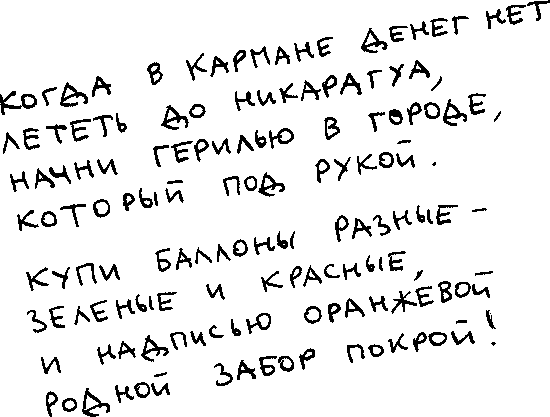 КОГДА В КАРМАНЕ ДЕНЕГ НЕТ
ЛЕТЕТЬ ДО НИКАРАГУА,
НАЧНИ ГЕРИЛЬЮ В ГОРОДЕ,
КОТОРЫЙ ПОД РУКОЙ.
КУПИ БАЛЛОНЫ РАЗНЫЕ -
ЗЕЛЕНЫЕ И КРАСНЫЕ,
И НАДПИСЬЮ ОРАНЖЕВОЙ
РОДНОЙ ЗАБОР ПОКРОЙ!